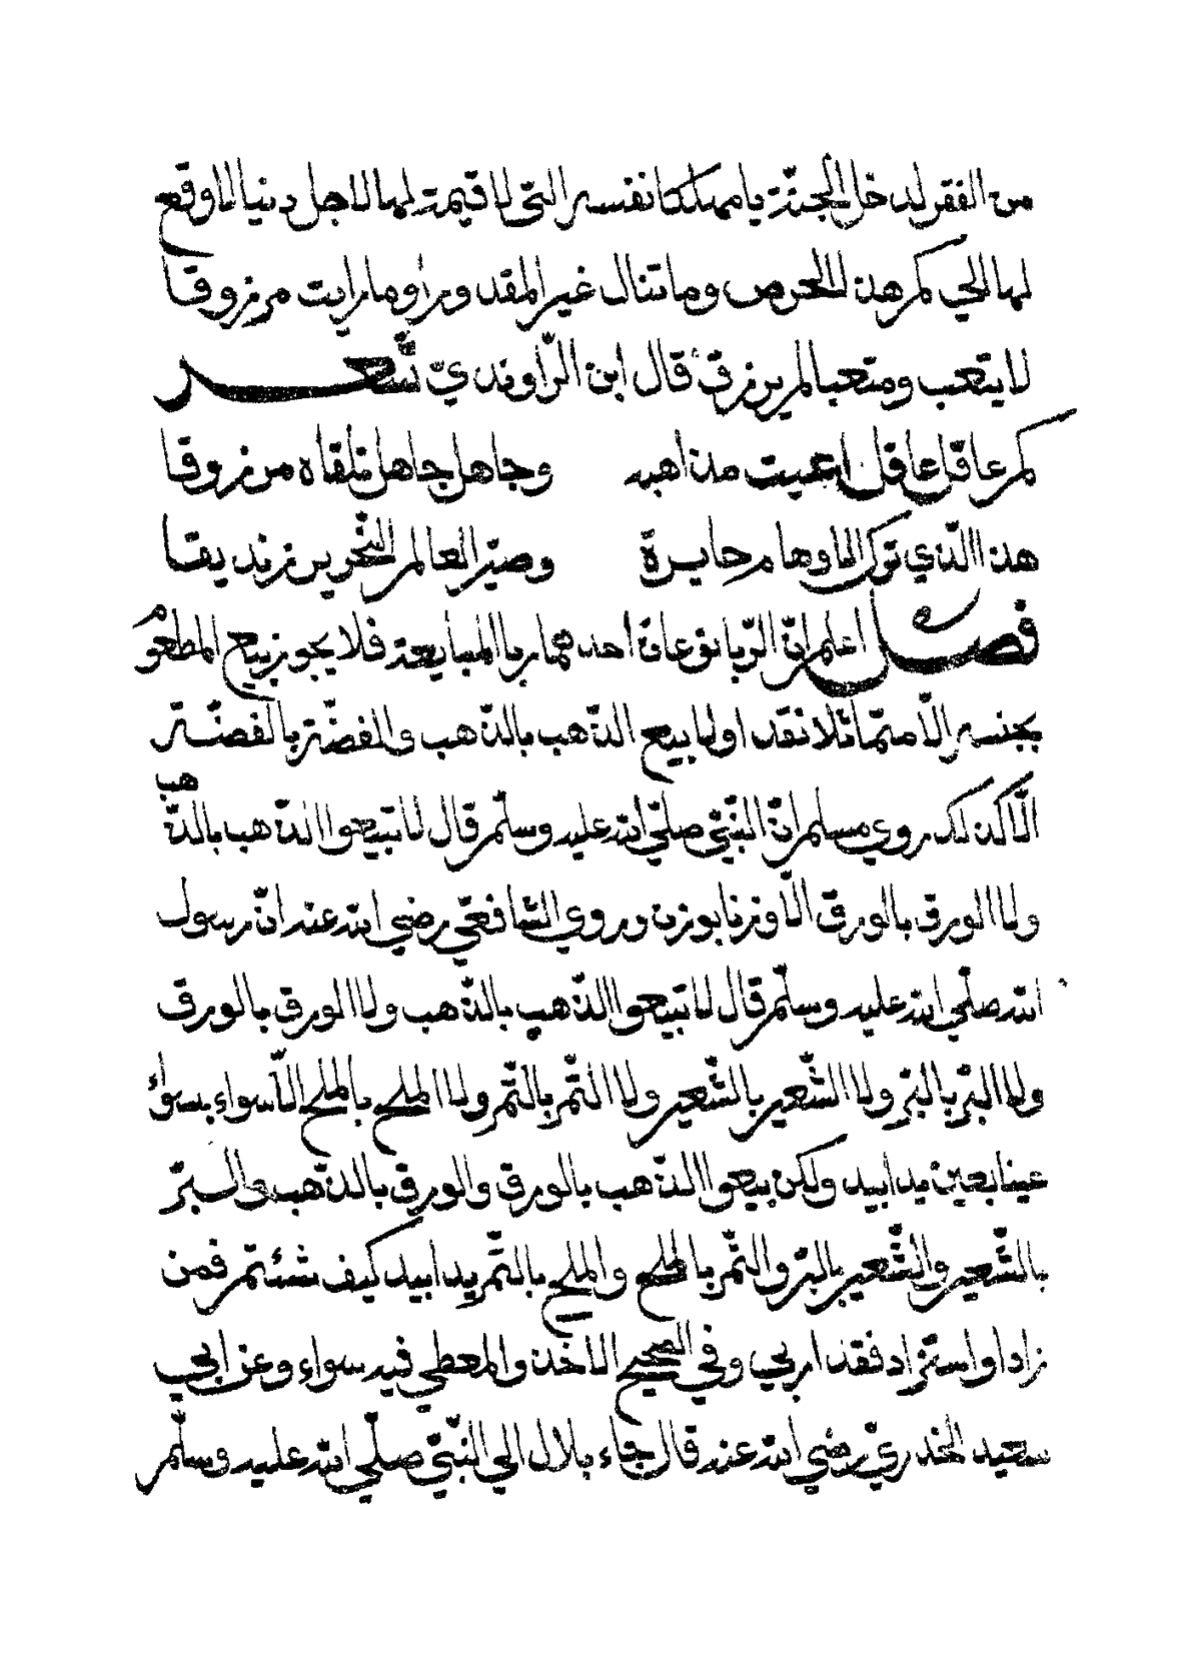 من الفقر لدخل الجنّة يا مهلكا نفسه التي لا قيمة لها لاجل دنيا لا وقع
لها الي كم هذا الحرص وما تنال غير المقدور او ما رايت مرزوقا
لا يتعب ومتعبا لم يرزق قال ابن الرّاونديّ شعر
كم عاقل عاقل اعيت مذاهبه وجاهل جاهل تلقاه مرزوقا
هذا الّذي ترك الاوهام حايرة وصيّر العالم النّحرير زنديقا
فصل اعلم انّ الرّبا نوعان احدهما ربا المبايعة فلا يجوز بيع المطعوم
بجنسه الّا متماثلا نقدا ولا بيع الذّهب بالذّهب والفضّة بالفضّة
الّا كذلك روي مسلم انّ النّبيّ صلّي الله عليه وسلّم قال لا تبيعوا الذّهب بالذّهب
ولا الورق بالورق الّا وزنا بوزن وروي الشّافعيّ رضي الله عنه انّ رسول
الله صلّي الله عليه وسلّم قال لا تبيعوا الذّهب بالذّهب ولا الورق بالورق
ولا البرّ بالبرّ ولا الشّعير بالشّعير ولا التّمر بالتّمر ولا الملح بالملح الّا سواء بسواء
عينا بعين يدا بيد ولكن بيعوا الذّهب بالورق والورق بالذّهب والبرّ
بالشّعير والشّعير بالبرّ والتّمر بالملح والملح بالتّمر يدا بيد كيف شئتم فمن
زاد او استزاد فقد اربي وفي الصّحيح الاخذ والمعطي فيه سواء وعن ابي
سعيد الخدريّ رضي الله عنه قال جاء بلال الي النّبيّ صلّي الله عليه وسلّم